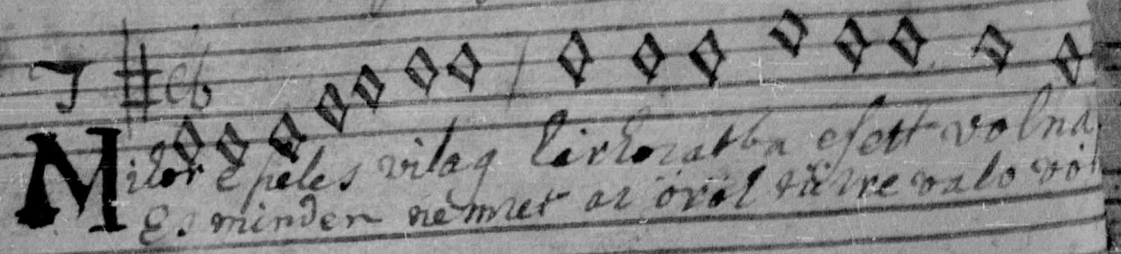 Mikor e ſeles vilag karhozatba eſett volna,
Es minden nemzet az örök tüzre valo vol